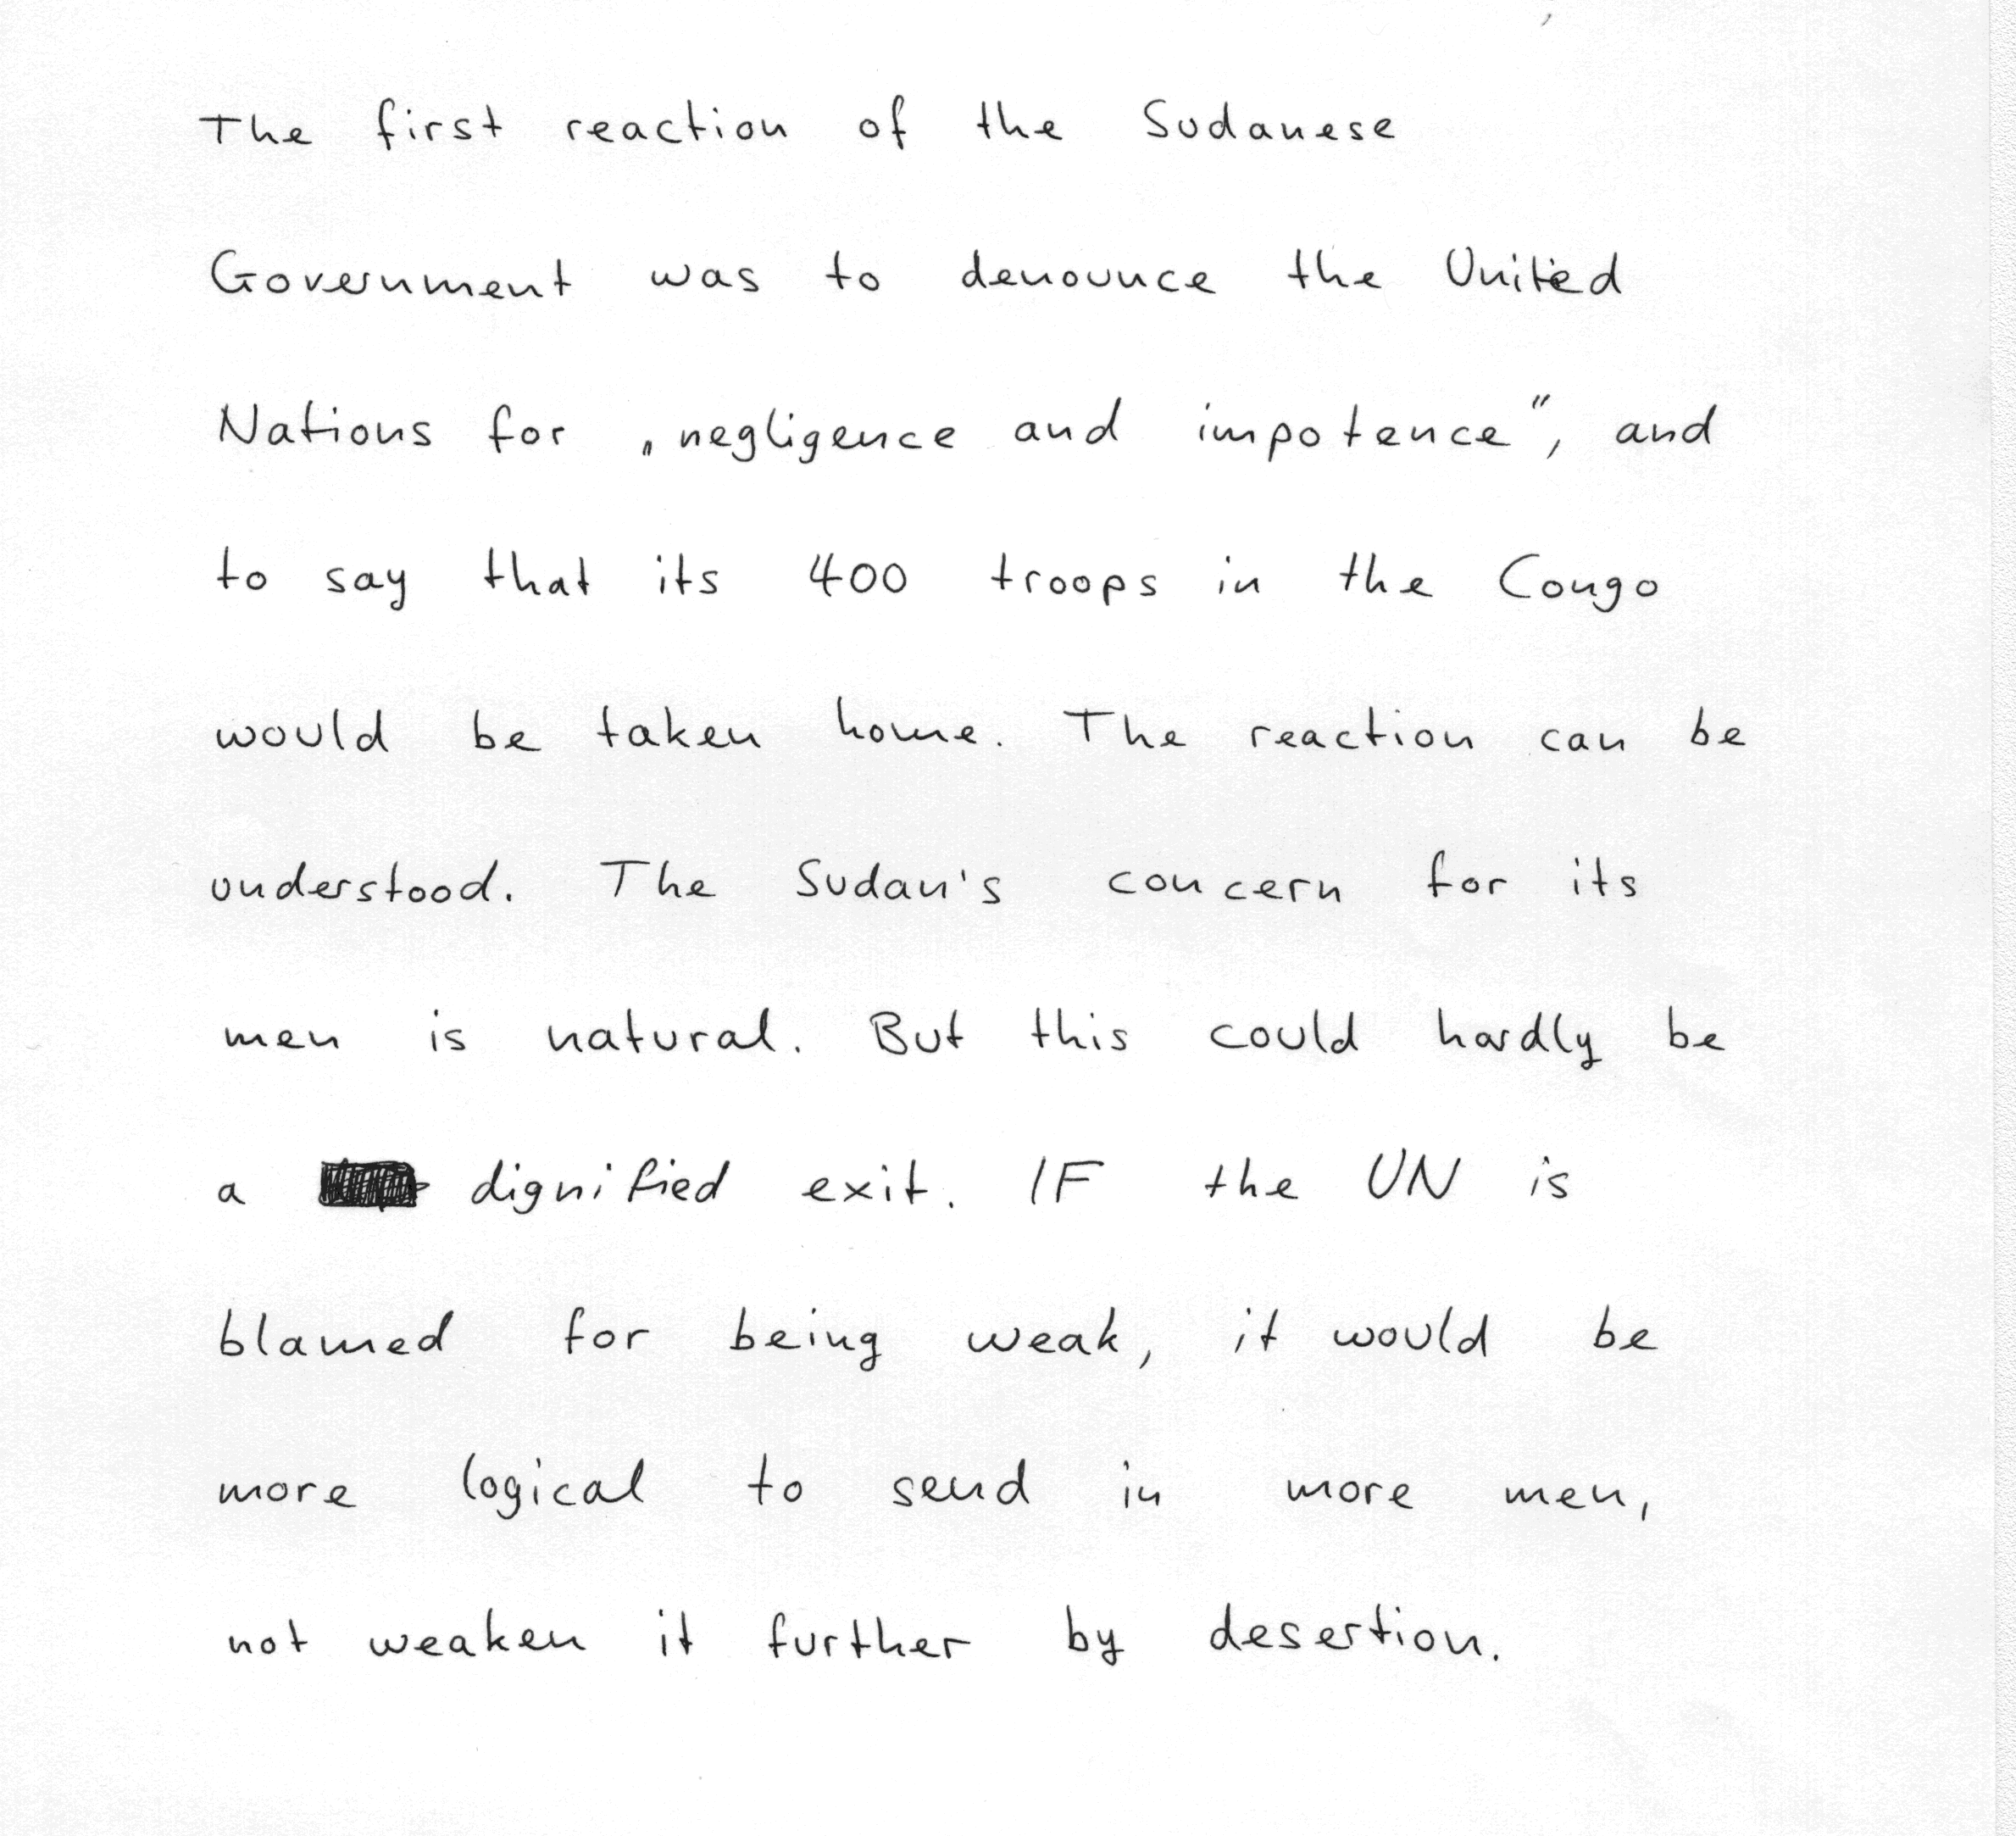 The first reaction of the Sudanese
Government was to denounce the United
Nations for „negligence and impotence“, and
to say that its 400 troops in the Congo
would be taken home. The reaction can be
understood. The Sudan's concern for its
men is natural. But this could hardly be
a dignified exit. IF the UN is
blamed for being weak, it would be
more logical to send in more men,
not weaken it further by desertion.